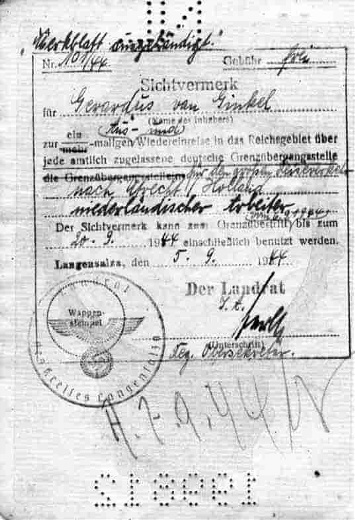 "Merkblatt ausgehändigt."
Nr. 101/44 Gebühr frei
Sichtvermerk
für Gerardus van Ginkel
(Name des Inhabers)
ein Aus- und
zur mehr-maligen Wiedereinreise in das Reichsgebiet über
jede amtlich zugelassene deutsche Grenzübergangsstelle
die Grenzübergangsstelle(n) für den großen Reiseverkehr
nach Utrecht / Holland
niederländischer Arbeiter
Der Sichtvermerk kann zum Grenzübertritt bis zum
20. 9. 1944 einschließlich benutzt werden.
Langensalza, den 5. 9. 1944
Der Landrat
I. A.
Wappen-
stempel
Landrat
des Kreises Langensalza
(Unterschrift)
Reg. Obersekretär.
A. 7. 9. 44